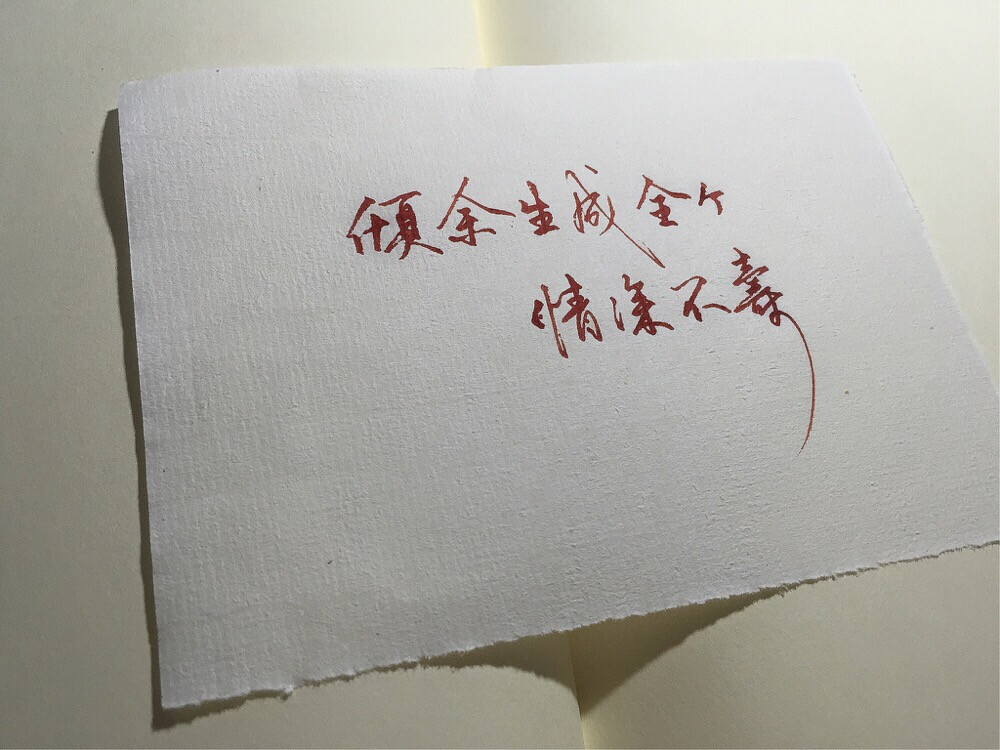 倾余生成全个
情深不寿